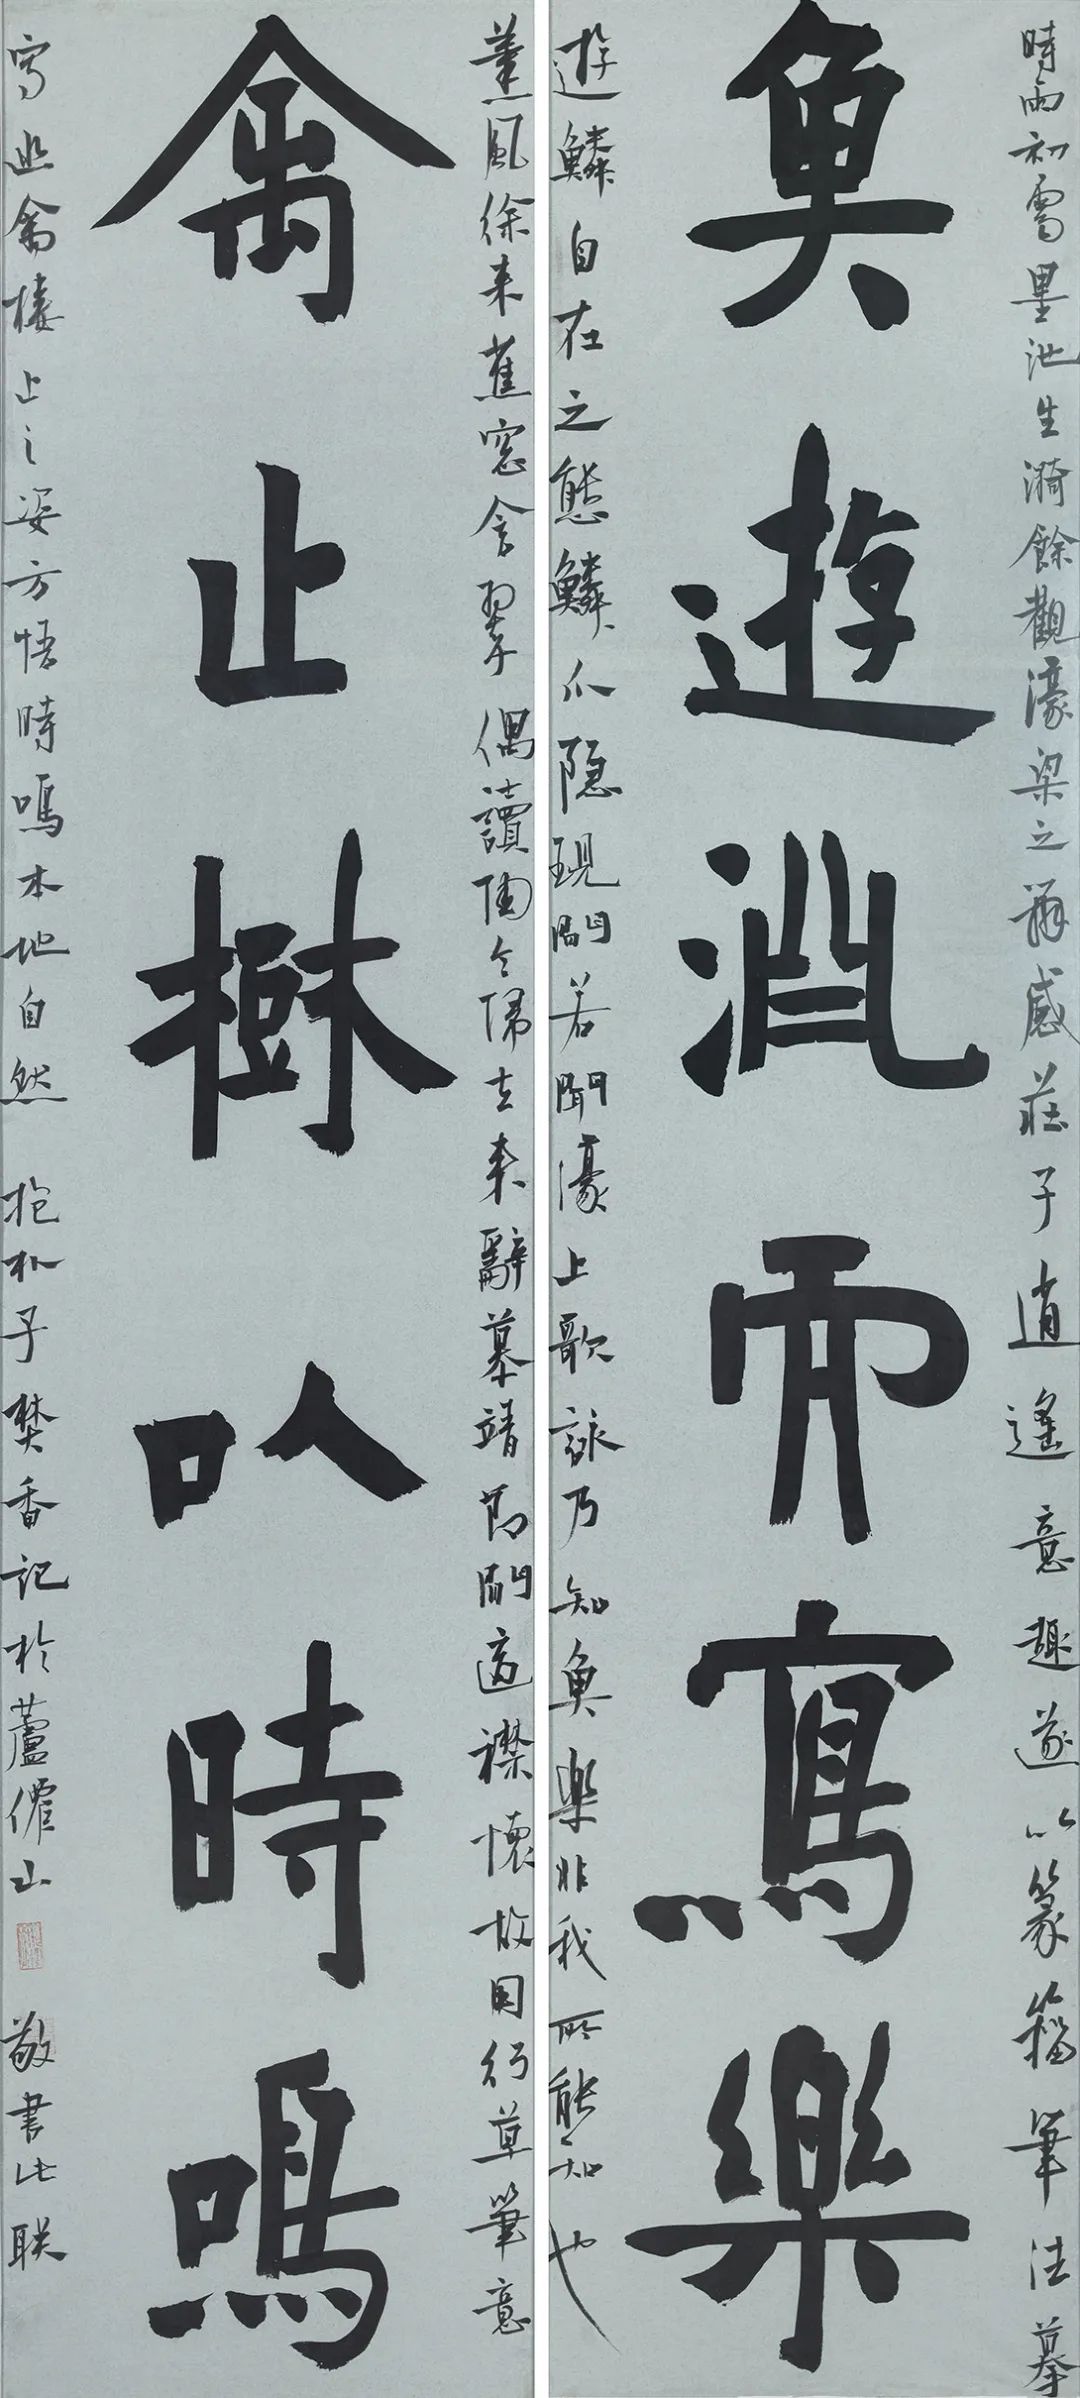 時雨初霽墨池生漪餘觀濠梁之稱感莊子逍遙意趣遂以篆籀筆法摹
魚遊淵而寫樂
遊鱗自在之態鱗爪隐現間若聞濠上歌詠乃知魚樂非我所能知也
薰風徐来蕉窓含翠偶讀陶令歸去来辭慕靖節閒適襟懷故因行草筆意
禽止樹以時鳴
寫幽禽棲止之姿方悟時鳴本地自然 抱朴子焚香記於蘆僊山 敬書此联